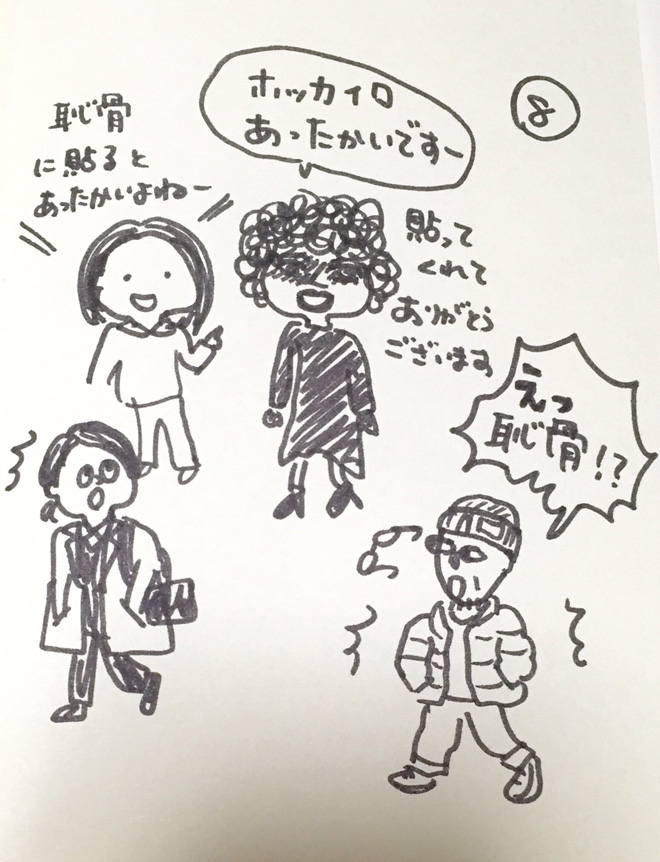 8
ホッカイロ
あったかいですー
恥骨
に貼ると
あったかいよねー
貼って
くれて
ありがとう
ございます
えっ
恥骨!?